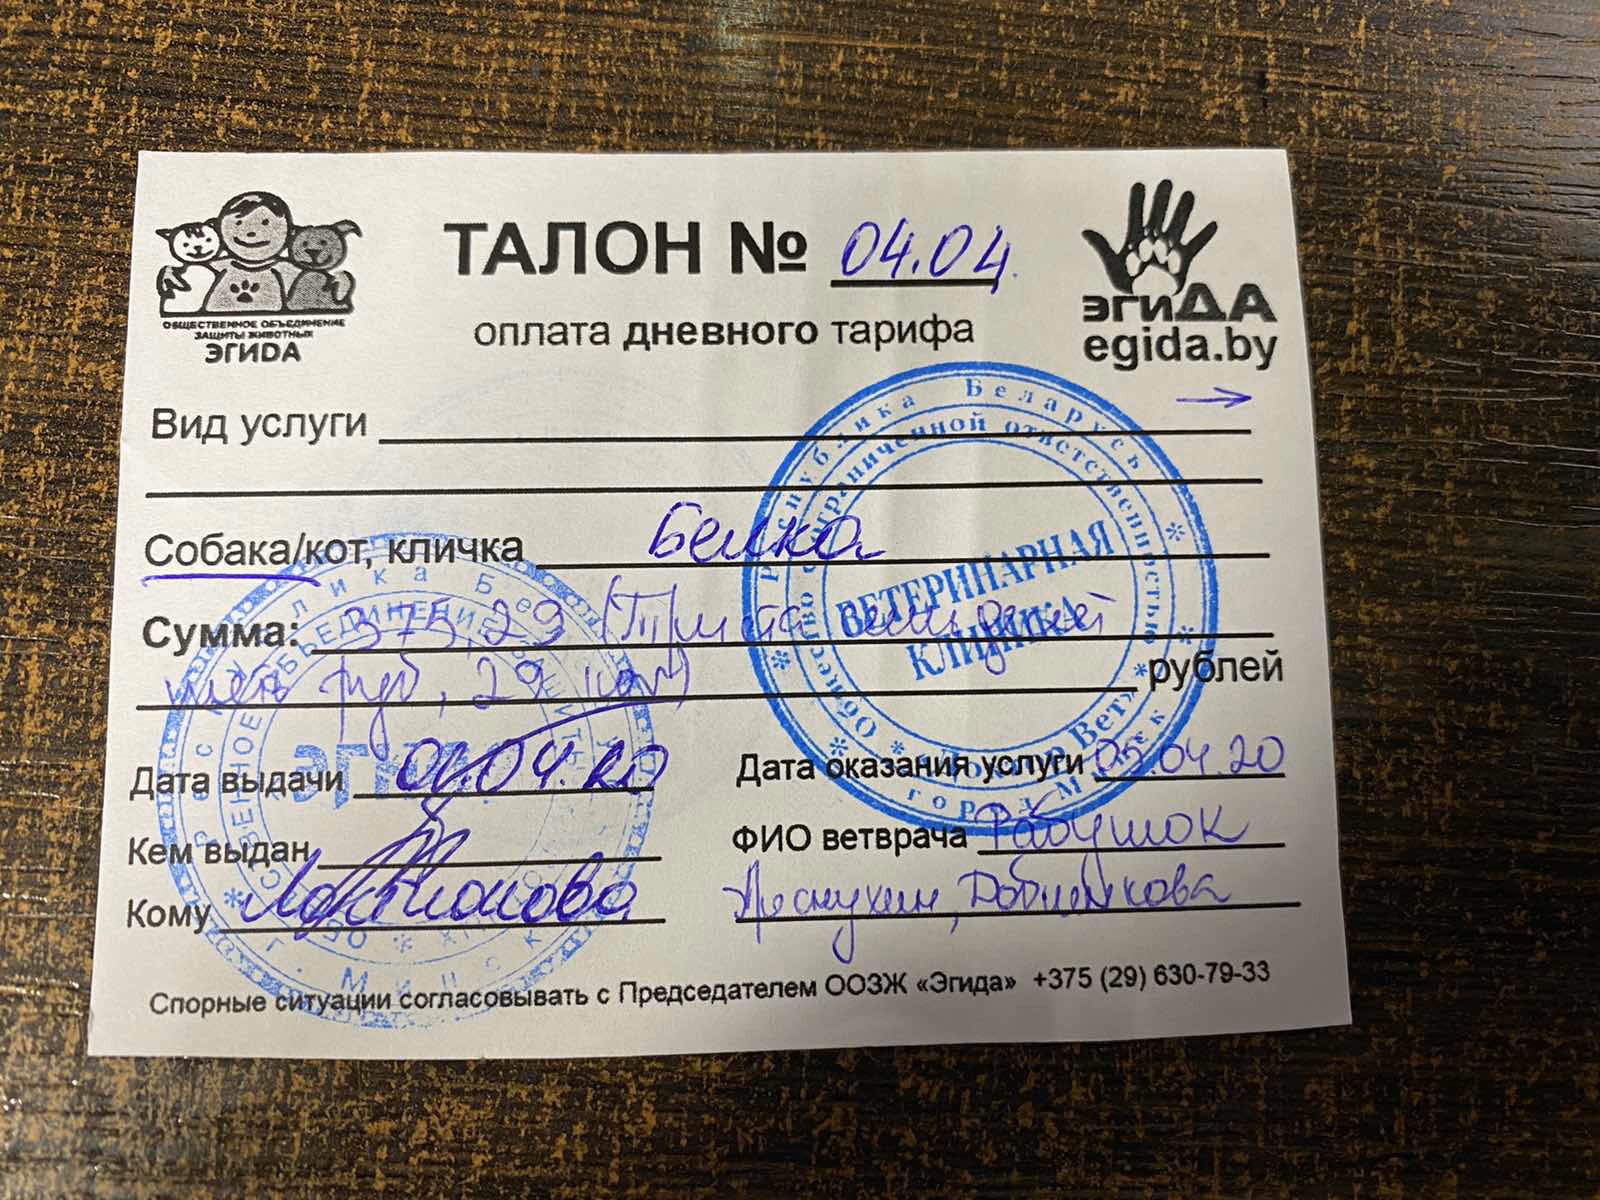 ТАЛОН № 04.04.
оплата дневного тарифа
ОБЩЕСТВЕННОЕ ОБЪЕДИНЕНИЕ
ЗАЩИТЫ ЖИВОТНЫХ
ЭГИDA
эгиДА
egida.by
Вид услуги
Собака/кот, кличка Белка
Сумма: 375,29 (Триста семьдесят
пять руб, 29 коп)
рублей
Дата выдачи 01.04.20
Дата оказания услуги 05.04.20
Кем выдан
ФИО ветврача Рабушок
Кому
Песнухин,
Спорные ситуации согласовывать с Председателем ООЗЖ «Эгида» +375 (29) 630-79-33
Республика Беларусь
Общество с ограниченной ответственностью
ВЕТЕРИНАРНАЯ
КЛИНИКА
«Доктор Вет»
город Минск
Республика Беларусь
ЭГИДА
г. Минск